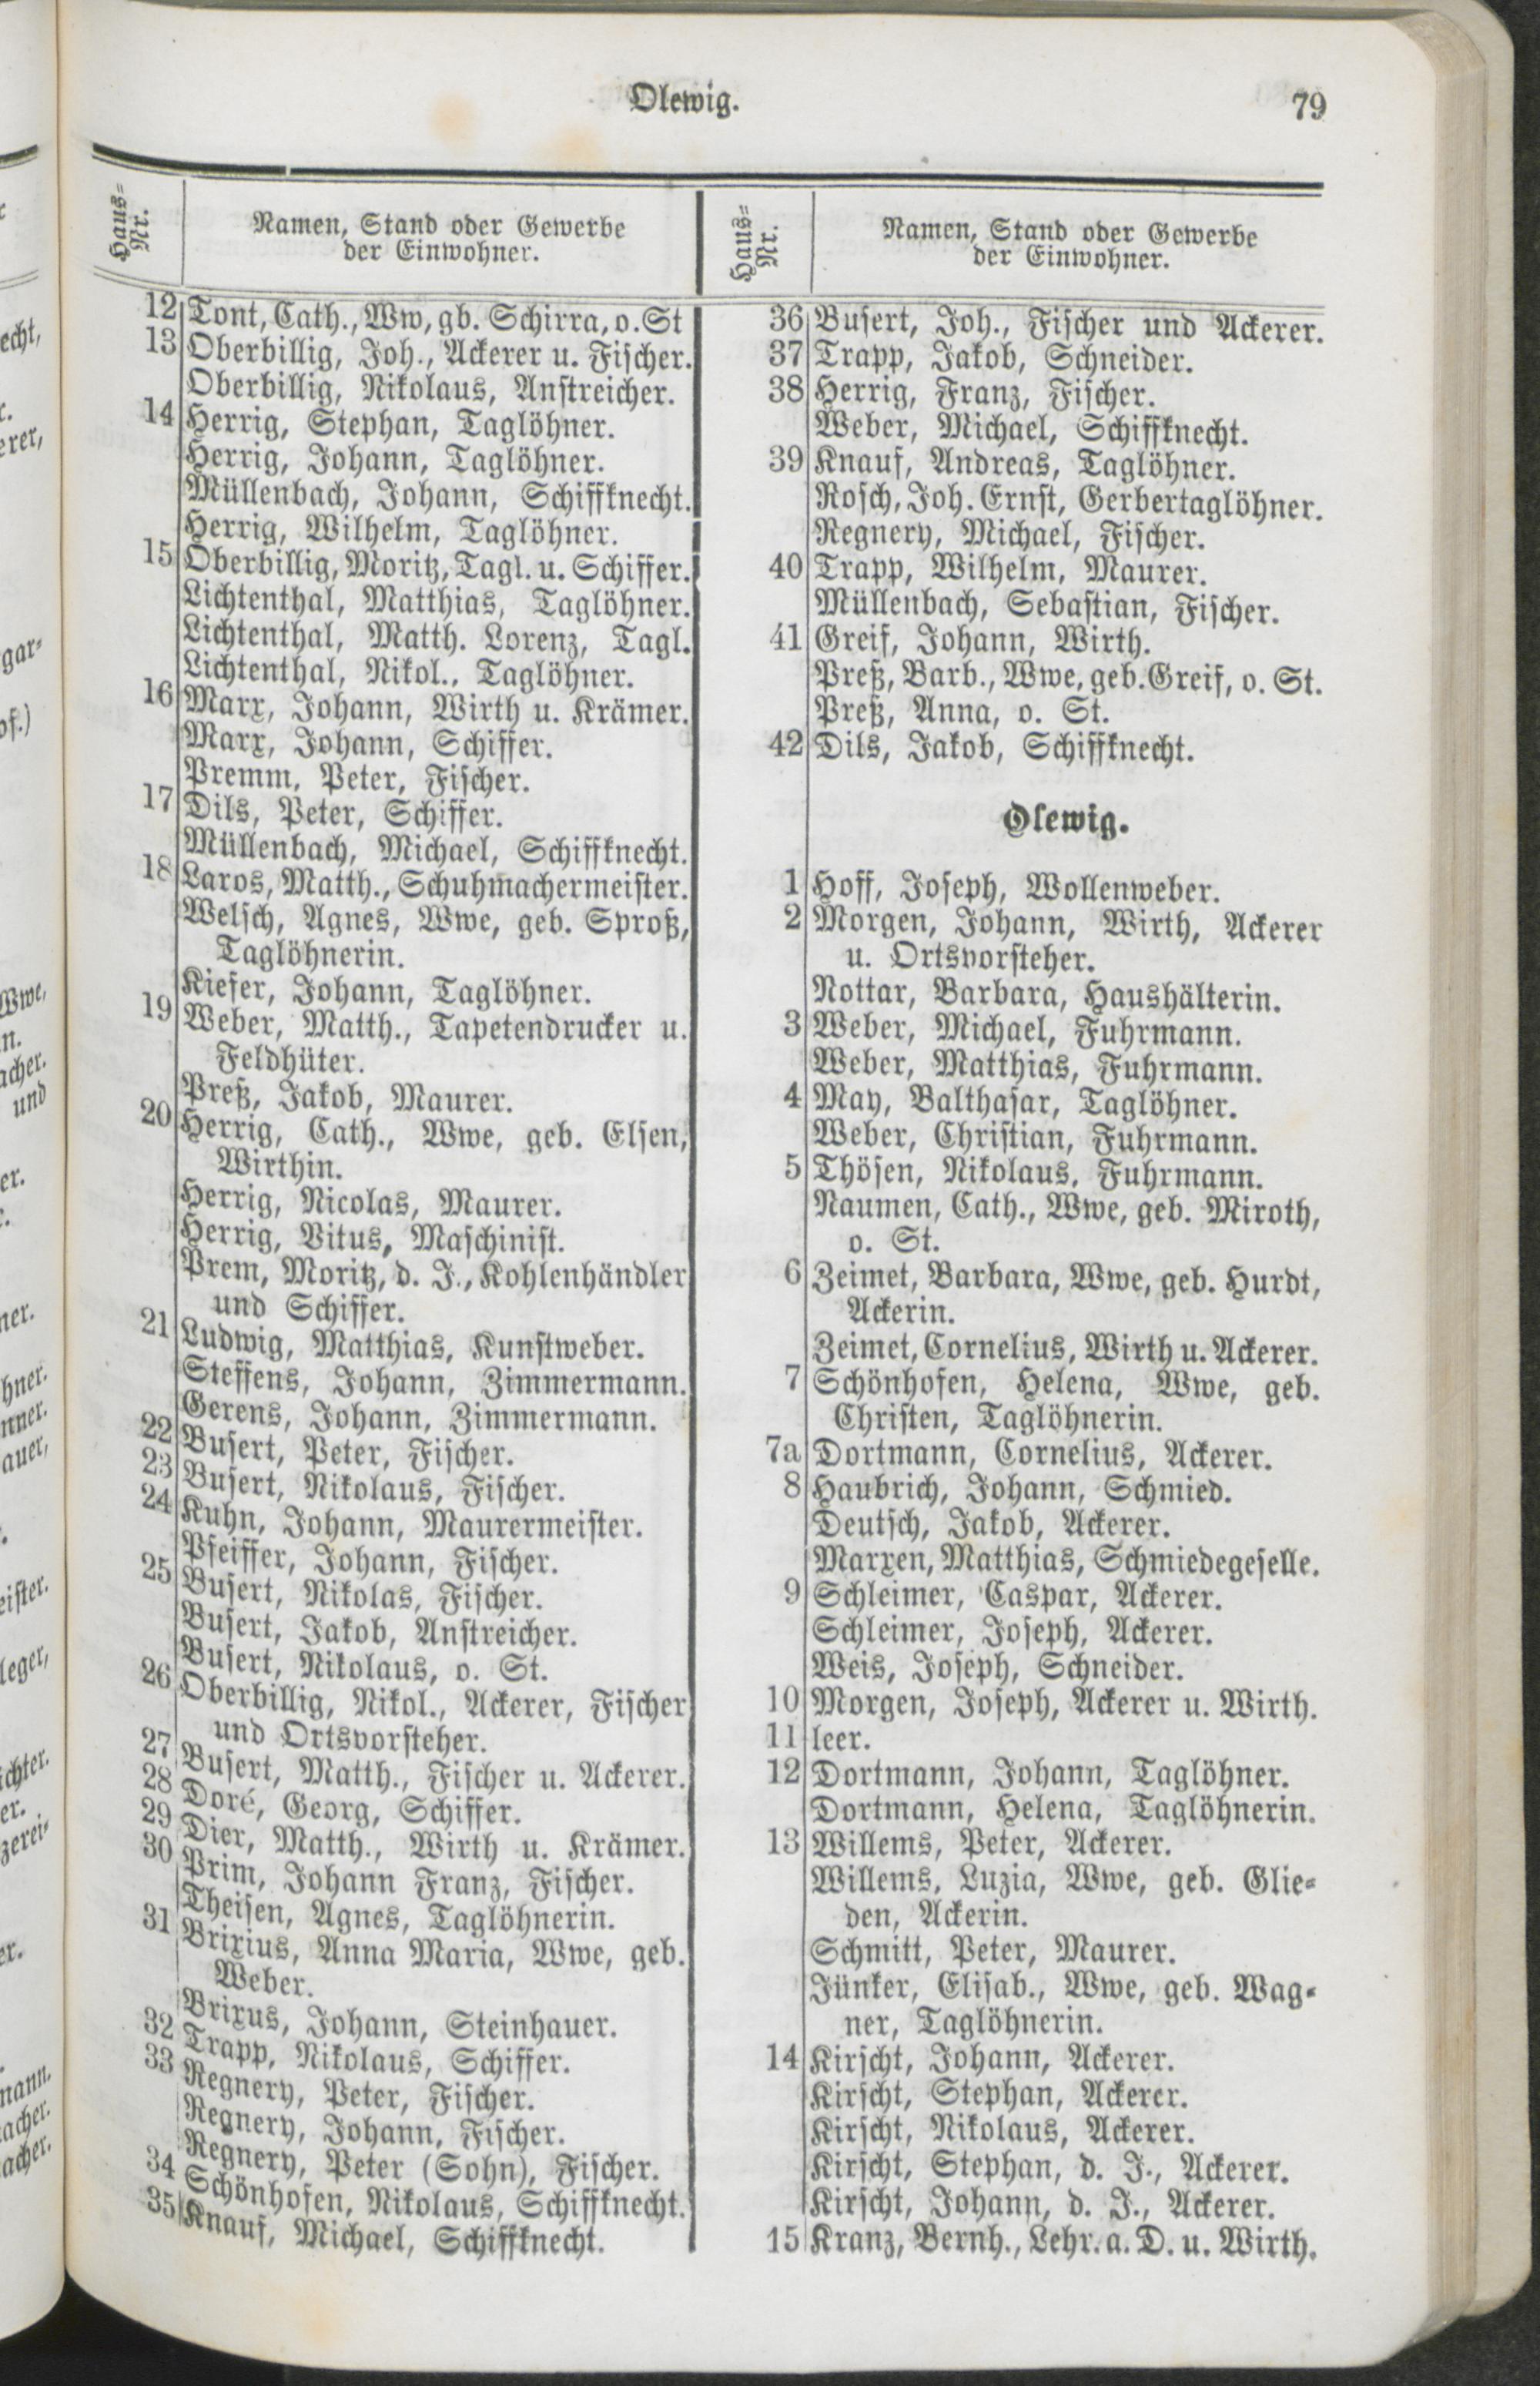 Olewig.
79
Haus-
Nr.
Namen, Stand oder Gewerbe
der Einwohner.
12 Tont, Cath., Ww, gb. Schirra, o. St
13 Oberbillig, Joh., Ackerer u. Fischer.
Oberbillig, Nikolaus, Anstreicher.
14 Herrig, Stephan, Taglöhner.
Herrig, Johann, Taglöhner.
Müllenbach, Johann, Schiffknecht.
Herrig, Wilhelm, Taglöhner.
15 Oberbillig, Moritz, Tagl. u. Schiffer.
Lichtenthal, Matthias, Taglöhner.
Lichtenthal, Matth. Lorenz, Tagl.
Lichtenthal, Nikol., Taglöhner.
16 Marx, Johann, Wirth u. Krämer.
Marx, Johann, Schiffer.
Premm, Peter, Fischer.
17 Dils, Peter, Schiffer.
Müllenbach, Michael, Schiffknecht.
18 Laros, Matth., Schuhmachermeister.
Welsch, Agnes, Wwe, geb. Sproß,
Taglöhnerin.
Kiefer, Johann, Taglöhner.
19 Weber, Matth., Tapetendrucker u.
Feldhüter.
Preß, Jakob, Maurer.
20 Herrig, Cath., Wwe, geb. Elsen,
Wirthin.
Herrig, Nicolas, Maurer.
Herrig, Vitus, Maschinist.
Prem, Moritz, d. J., Kohlenhändler
und Schiffer.
21 Ludwig, Matthias, Kunstweber.
Steffens, Johann, Zimmermann.
Gerens, Johann, Zimmermann.
22 Busert, Peter, Fischer.
23 Busert, Nikolaus, Fischer.
24 Kuhn, Johann, Maurermeister.
Pfeiffer, Johann, Fischer.
25 Busert, Nikolas, Fischer.
Busert, Jakob, Anstreicher.
Busert, Nikolaus, o. St.
26 Oberbillig, Nikol., Ackerer, Fischer
und Ortsvorsteher.
27 Busert, Matth., Fischer u. Ackerer.
28 Doré, Georg, Schiffer.
29 Dier, Matth., Wirth u. Krämer.
30 Prim, Johann Franz, Fischer.
Theisen, Agnes, Taglöhnerin.
31 Brixius, Anna Maria, Wwe, geb.
Weber.
Brixus, Johann, Steinhauer.
32 Trapp, Nikolaus, Schiffer.
33 Regnery, Peter, Fischer.
Regnery, Johann, Fischer.
Regnery, Peter (Sohn), Fischer.
34 Schönhofen, Nikolaus, Schiffknecht.
35 Knauf, Michael, Schiffknecht.
Haus-
Nr.
Namen, Stand oder Gewerbe
der Einwohner.
36 Busert, Joh., Fischer und Ackerer.
37 Trapp, Jakob, Schneider.
38 Herrig, Franz, Fischer.
Weber, Michael, Schiffknecht.
39 Knauf, Andreas, Taglöhner.
Rosch, Joh. Ernst, Gerbertaglöhner.
Regnery, Michael, Fischer.
40 Trapp, Wilhelm, Maurer.
Müllenbach, Sebastian, Fischer.
41 Greif, Johann, Wirth.
Preß, Barb., Wwe, geb. Greif, o. St.
Preß, Anna, o. St.
42 Dils, Jakob, Schiffknecht.
Olewig.
1 Hoff, Joseph, Wollenweber.
2 Morgen, Johann, Wirth, Ackerer
u. Ortsvorsteher.
Nottar, Barbara, Haushälterin.
3 Weber, Michael, Fuhrmann.
Weber, Matthias, Fuhrmann.
4 May, Balthasar, Taglöhner.
Weber, Christian, Fuhrmann.
5 Thösen, Nikolaus, Fuhrmann.
Naumen, Cath., Wwe, geb. Miroth,
o. St.
6 Zeimet, Barbara, Wwe, geb. Hurdt,
Ackerin.
Zeimet, Cornelius, Wirth u. Ackerer.
7 Schönhofen, Helena, Wwe, geb.
Christen, Taglöhnerin.
7a Dortmann, Cornelius, Ackerer.
8 Haubrich, Johann, Schmied.
Deutsch, Jakob, Ackerer.
Marxen, Matthias, Schmiedegeselle.
9 Schleimer, Caspar, Ackerer.
Schleimer, Joseph, Ackerer.
Weis, Joseph, Schneider.
10 Morgen, Joseph, Ackerer u. Wirth.
11 leer.
12 Dortmann, Johann, Taglöhner.
Dortmann, Helena, Taglöhnerin.
13 Willems, Peter, Ackerer.
Willems, Luzia, Wwe, geb. Glie-
den, Ackerin.
Schmitt, Peter, Maurer.
Jünker, Elisab., Wwe, geb. Wag-
ner, Taglöhnerin.
14 Kirscht, Johann, Ackerer.
Kirscht, Stephan, Ackerer.
Kirscht, Nikolaus, Ackerer.
Kirscht, Stephan, d. J., Ackerer.
Kirscht, Johann, d. J., Ackerer.
15 Kranz, Bernh., Lehr. a. D. u. Wirth.